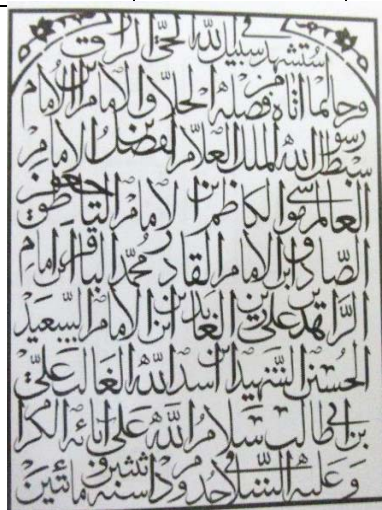 استشهد فی سبیل الله الحی الرازق
فرحا لما اتاه من فضله الخلاق الامام بن الامام
سبط رسول الله الملک العلام الفضل بن الامام
العالم موسی الکاظم بن الامام الناطق جعفر
الصادق ابن الامام القادر محمد الباقر بن امام
الزاهد علی زین العابدین ابن الامام السعید
الحسین الشهید ابن اسد الله الغالب علی
بن ابی طالب سلام الله علی ابائه الکرام
و علیه السلام فی حدود سنه ثلث و مائتین